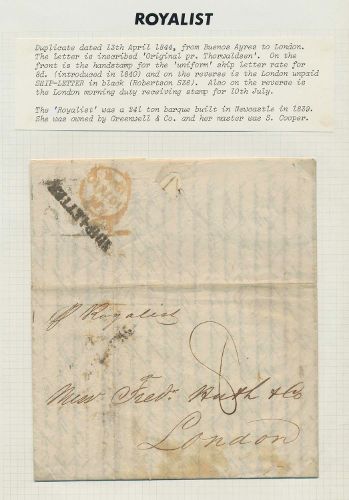 ROYALIST
Duplicate dated 13th April 1844, from Buenos Ayres to London.
The letter is inscribed 'Original pr. Thorwaldsen'. On the
front is the handstamp for the 'uniform' ship letter rate for
8d. (introduced in 1840) and on the reverse is the London unpaid
SHIP-LETTER in black (Robertson S28). Also on the reverse is
the London morning duty receiving stamp for 10th July.
The 'Royalist' was a 241 ton barque built in Newcastle in 1839.
She was owned by Greenwell & Co. and her master was S. Cooper.
SHIP-LETTER
p Royalist
8
Messrs Fredk. Huth & Co
London